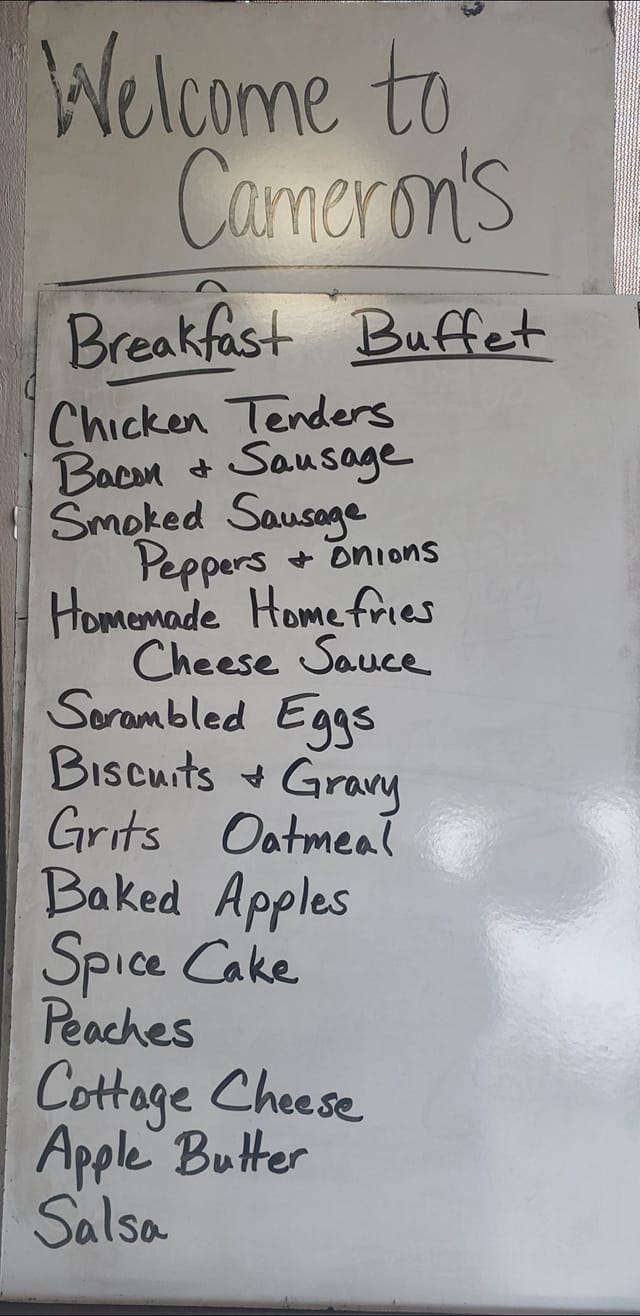 Welcome to
Cameron's
Breakfast Buffet
Chicken Tenders
Bacon + Sausage
Smoked Sausage
Peppers + Onions
Homemade Homefries
Cheese Sauce
Scrambled Eggs
Biscuits + Gravy
Grits Oatmeal
Baked Apples
Spice Cake
Peaches
Cottage Cheese
Apple Butter
Salsa